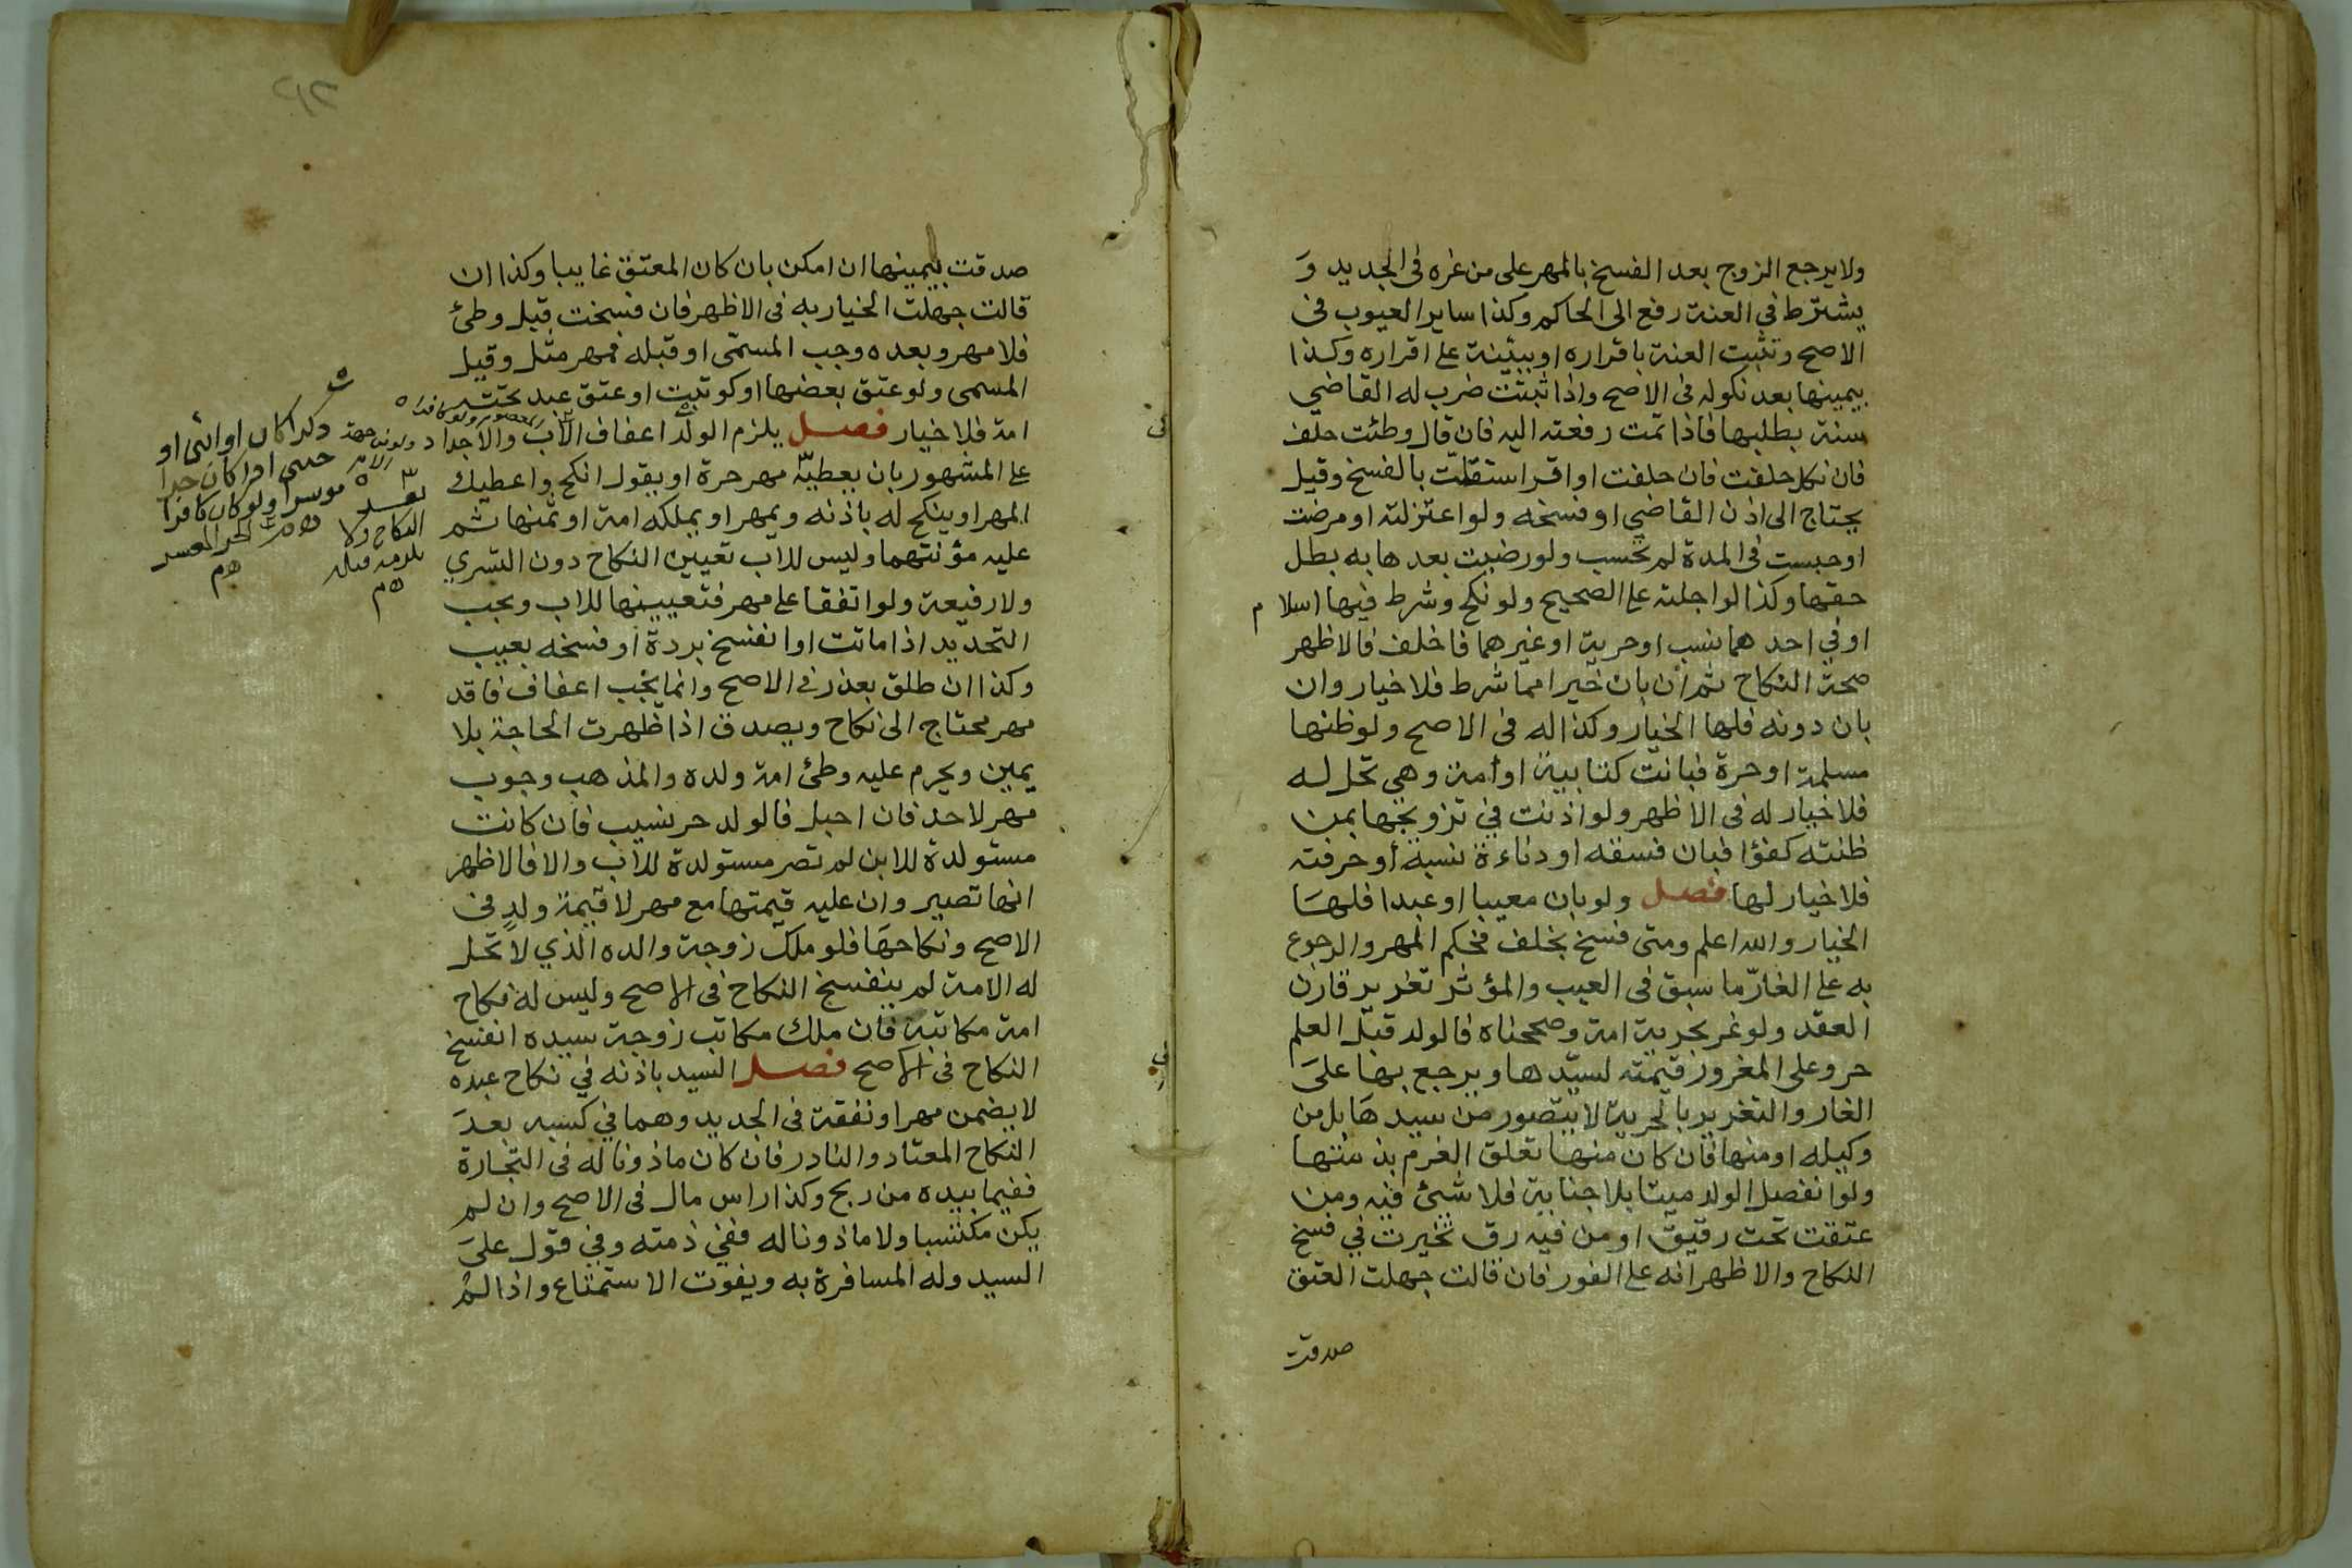 ولا يرجع الزوج بعد الفسخ بالمهر على من غره فى الجديد وَ
يشترط في العنة رفع الى الحاكم وكذا ساير العيوب فى
الاصح وتثبت العنة باقراره او ببيّنة على اقراره وكذا
بيمينها بعد نكوله فى الاصح واذا ثبتت ضرب له القاضي
سنة بطلبها فاذا تمت رفعته اليه فان قال وطئت حلف
فان نكل حلفت فان حلفت او اقر استقلت بالفسخ وقيل
يحتاج الى اذن القاضي او فسخه ولو اعتزلته او مرضت
او حبست فى المدة لم تحسب ولو رضيت بعدها به بطل
حقها وكذا لو اجلته على الصحيح ولو نكح وشرط فيها اسلام
او في احدهما نسب او حرية او غيرهما فاخلف فالاظهر
صحة النكاح ثم ان بان خيرا مما شرط فلا خيار وان
بان دونه فلها الخيار وكذا له فى الاصح ولو ظنها
مسلمة او حرة فبانت كتابية او امة وهي تحل له
فلا خيار له فى الاظهر ولو اذنت في تزويجها بمن
ظنته كفؤا فبان فسقه او دناءة نسبه أو حرفته
فلا خيار لها فصل ولو بان معيبا او عبدا فلهَا
الخيار والله اعلم ومتى فسخ بخلف فحكم المهر والرجوع
به على الغارّ ما سبق فى العيب والمؤثر تغرير قارن
العقد ولو غر بحرية امة وصححناه فالولد قبل العلم
حر وعلى المغرور قيمته لسيّدها ويرجع بها علىَ
الغار والتغرير بالحرية لا يتصور من سيدهَا بل من
وكيله او منها فان كان منها تعلق الغرم بذمتها
ولو انفصل الولد ميتا بلا جناية فلا شيئ فيه ومن
عتقت تحت رقيق او من فيه رق تخيرت في فسخ
النكاح والاظهر انه على الفور فان قالت جهلت العتق
صدقت
صدقت بيمينها ان امكن بان كان المعتق غايبا وكذا ان
قالت جهلت الخيار به فى الاظهر فان فسخت قبل وطئ
فلا مهر وبعده وجب المسمّى او قبله فمهر مثل وقيل
المسمى ولو عتق بعضها او كوتبت او عتق عبد تحته
امة فلا خيار فصل يلزم الولد اعفاف الاب والاجداد
على المشهور بان يعطيه مهر حرة او يقول انكح واعطيك
المهر او ينكح له باذنه ويمهر او يملكه امة او ثمنها ثم
عليه مؤنتهما وليس للاب تعيين النكاح دون التسري
ولا رفيعة ولو اتفقا على مهر فتعيينها للاب ويجب
التجديد اذا ماتت او انفسخ بردة او فسخه بعيب
وكذا ان طلق بعذر في الاصح وانما يجب اعفاف فاقد
مهر محتاج الى نكاح ويصدق اذا ظهرت الحاجة بلا
يمين ويحرم عليه وطئ امة ولده والمذهب وجوب
مهر لا حد فان احبل فالولد حر نسيب فان كانت
مستولدة للابن لم تصر مستولدة للاب والا فالاظهر
انها تصير وان عليه قيمتها مع مهر لا قيمة ولدٍ فى
الاصح ونكاحهَا فلو ملك زوجة والده الذي لا تحل
له الامة لم ينفسخ النكاح فى الاصح وليس له نكاح
امة مكاتبة فان ملك مكاتب زوجة سيده انفسخ
النكاح فى الاصح فصل السيد باذنه في نكاح عبده
لا يضمن مهرا ونفقة فى الجديد وهما في كسبه بعدَ
النكاح المعتاد والنادر فان كان ماذونا له فى التجارة
ففيما بيده من ربح وكذا راس مال فى الاصح وان لم
يكن مكتسبا ولا ماذونا له ففي ذمته وفي قول علىَ
السيد وله المسافرة به ويفوت الاستمتاع واذا لم
ذكرا كان او انثى او
موسرا ولو كان كافرا
الحر المعسر
النكاح ولا
يلزمه قبله